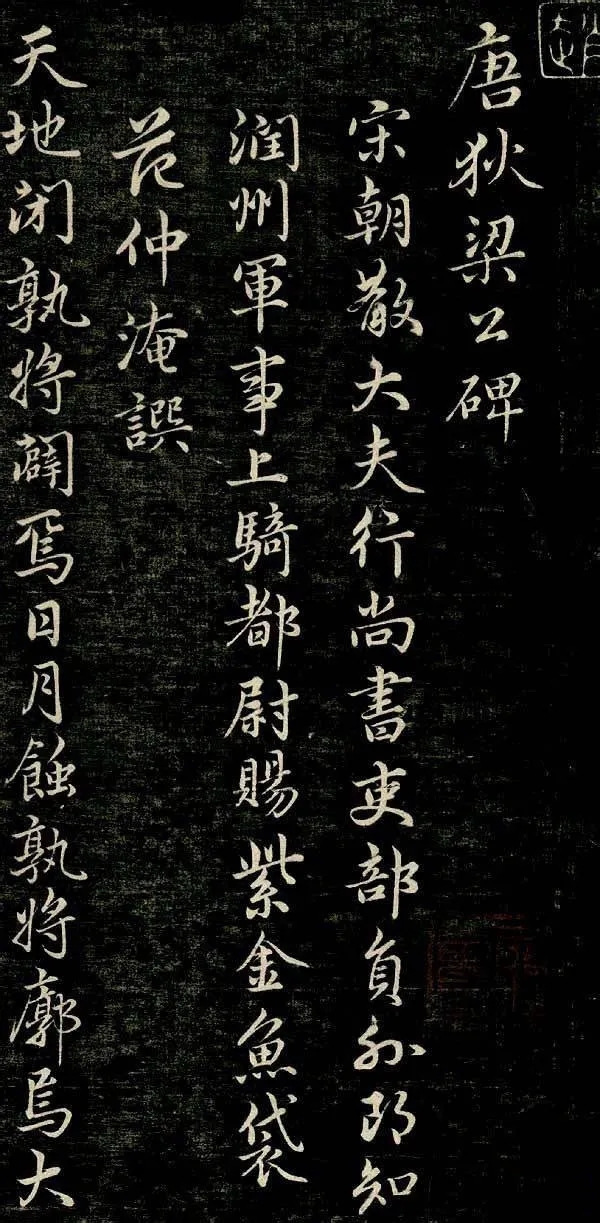 唐狄梁公碑
宋朝散大夫行尚書吏部負外郎知
潤州軍事上騎都尉賜紫金魚袋
范仲淹譔
天地閉孰將闢焉日月蝕孰將廓焉大